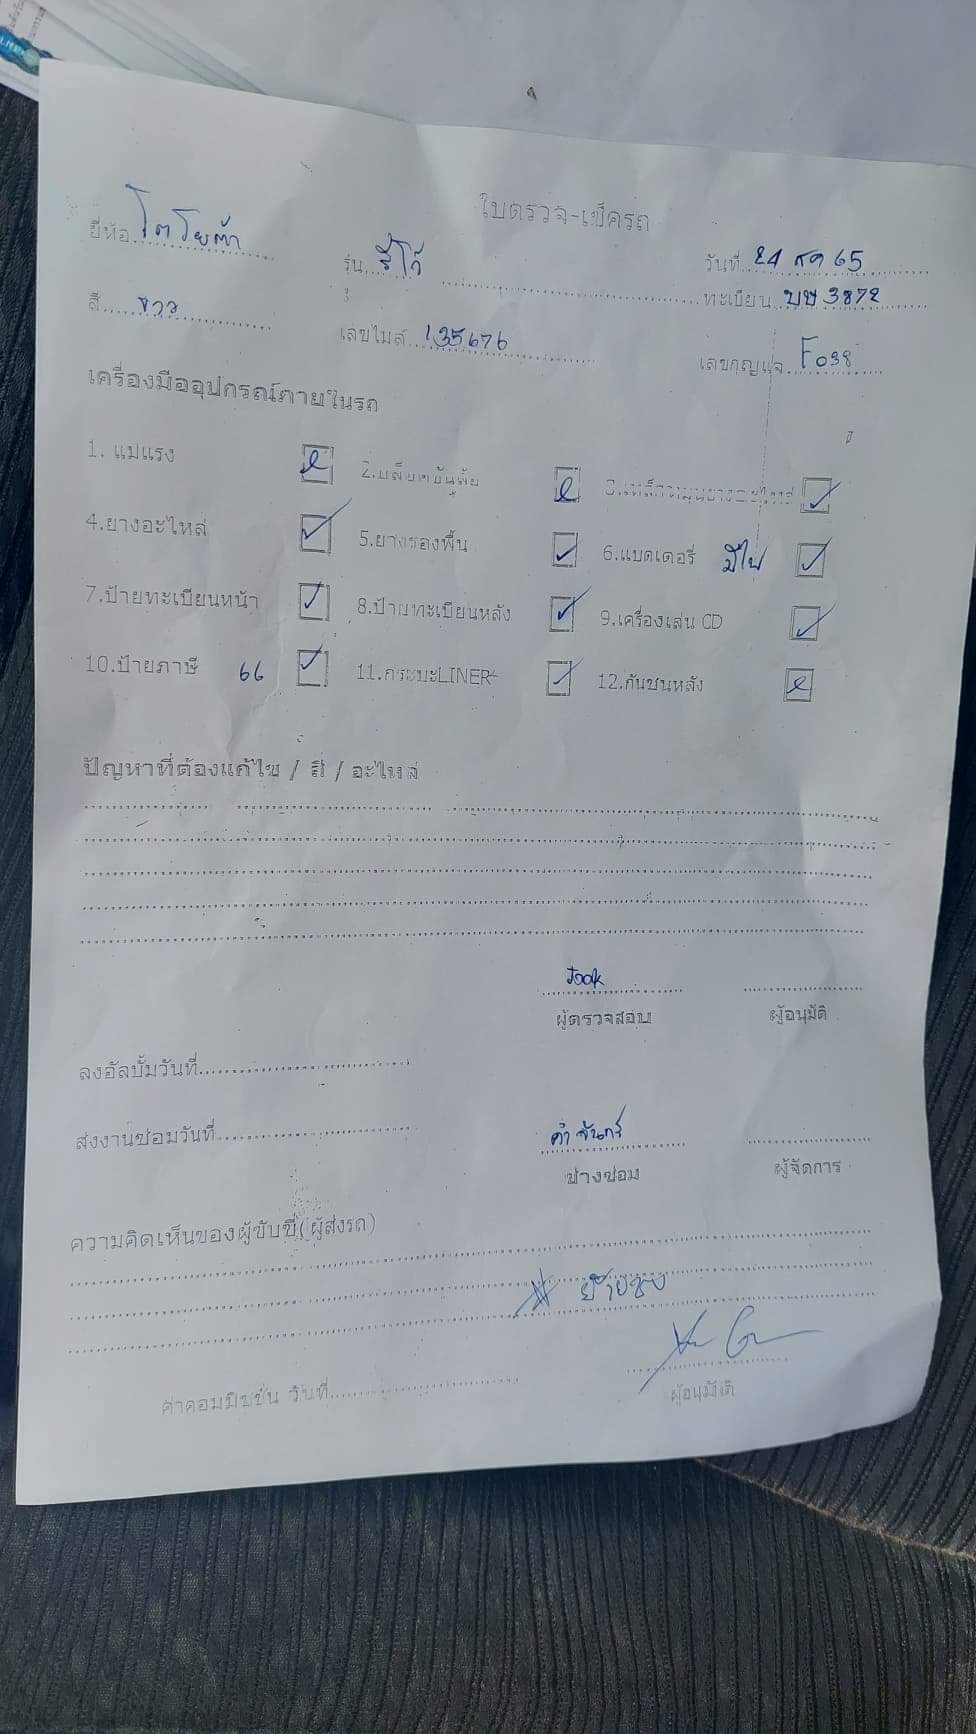 ใบตรวจ-เช็ครถ
ยี่ห้อ โตโยต้า รุ่น รีโว้ วันที่ 24 ตค 65
สี ขาว เลขไมล์ 135676 ทะเบียน บษ 3872
เลขกุญแจ F038
เครื่องมืออุปกรณ์ภายในรถ
1. แม่แรง 2.บล็อคขันล้อ
4.ยางอะไหล่ 5.ยางรองพื้น 6.แบตเตอรี่ มีไฟ
7.ป้ายทะเบียนหน้า 8.ป้ายทะเบียนหลัง 9.เครื่องเล่น CD
10.ป้ายภาษี 66 11.กระบะLINER 12.กันชนหลัง
ปัญหาที่ต้องแก้ไข / สี / อะไหล่
Jook
ผู้ตรวจสอบ ผู้อนุมัติ
ลงอัลบั้มวันที่
ส่งงานซ่อมวันที่ คำจันทร์
ช่างซ่อม ผู้จัดการ
ความคิดเห็นของผู้ขับขี่(ผู้ส่งรถ)
ค่าคอมมิชชั่น วันที่ ผู้อนุมัติ